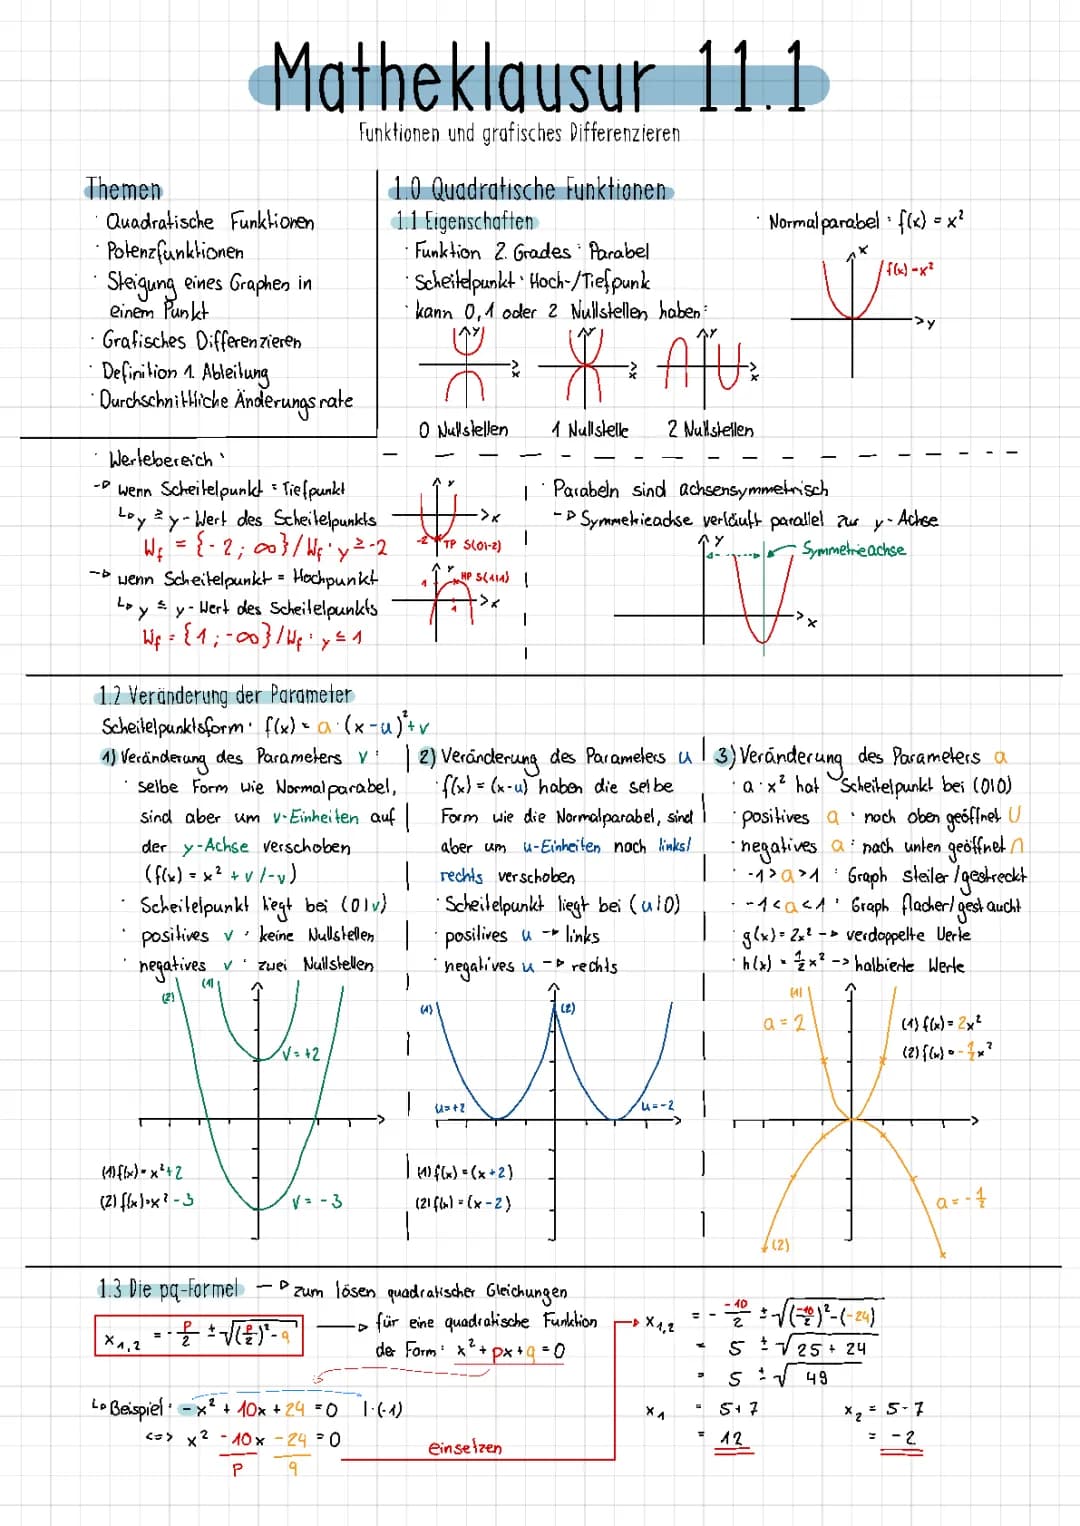 Matheklausur 11.1
Funktionen und grafisches Differenzieren
Themen
· Quadratische Funktionen
· Potenzfunktionen
· Steigung eines Graphen in
einem Punkt
· Grafisches Differenzieren
· Definition 1. Ableitung
· Durchschnittliche Änderungsrate
1.0 Quadratische Funktionen
1.1 Eigenschaften
· Funktion 2. Grades: Parabel
· Scheitelpunkt: Hoch-/Tiefpunk
· kann 0, 1 oder 2 Nullstellen haben:
y x
y x
y x
0 Nullstellen 1 Nullstelle 2 Nullstellen
· Normalparabel: f(x) = x²
x
f(x) = x²
y
· Wertebereich:
-▷ wenn Scheitelpunkt = Tiefpunkt
↳ y ≥ y-Wert des Scheitelpunkts
W_f = {-2; ∞} / W_f: y ≥ -2
-▷ wenn Scheitelpunkt = Hochpunkt
↳ y ≤ y-Wert des Scheitelpunkts
W_f = {1; -∞} / W_f: y ≤ 1
y
x
-2 TP S(0|-2)
y
1 HP S(1|1)
x
1
· Parabeln sind achsensymmetrisch
-▷ Symmetrieachse verläuft parallel zur y-Achse
y
Symmetrieachse
x
1.2 Veränderung der Parameter
Scheitelpunktsform: f(x) = a · (x-u)² + v
1) Veränderung des Parameters v:
· selbe Form wie Normalparabel,
sind aber um v-Einheiten auf
der y-Achse verschoben
(f(x) = x² + v / -v)
· Scheitelpunkt liegt bei (0|v)
· positives v: keine Nullstellen
· negatives v: zwei Nullstellen
(2) (1)
v = +2
(1) f(x) = x² + 2
(2) f(x) = x² - 3
v = -3
2) Veränderung des Parameters u
· f(x) = (x-u) haben die selbe
Form wie die Normalparabel, sind
aber um u-Einheiten nach links/
rechts verschoben
· Scheitelpunkt liegt bei (u|0)
· positives u -▷ links
· negatives u -▷ rechts
(1) (2)
u = +2 u = -2
(1) f(x) = (x+2)
(2) f(x) = (x-2)
3) Veränderung des Parameters a
· a · x² hat Scheitelpunkt bei (0|0)
· positives a: nach oben geöffnet U
· negatives a: nach unten geöffnet ∩
· -1 > a > 1: Graph steiler/gestreckt
· -1 < a < 1: Graph flacher/gestaucht
· g(x) = 2x² -▷ verdoppelte Werte
· h(x) = ½x² -> halbierte Werte
(1)
a = 2
(1) f(x) = 2x²
(2) f(x) = -½x²
a = -½
(2)
1.3 Die pq-Formel -▷ zum lösen quadratischer Gleichungen
x₁,₂ = -p/2 ± √((p/2)² - q)
▷ für eine quadratische Funktion
der Form: x² + px + q = 0
↳ Beispiel: -x² + 10x + 24 = 0 | · (-1)
<=> x² - 10x - 24 = 0
p q
einsetzen
x₁,₂ = - -10/2 ± √((-10/2)² - (-24))
= 5 ± √25 + 24
= 5 ± √49
x₁ = 5 + 7 x₂ = 5 - 7
= 12 = -2